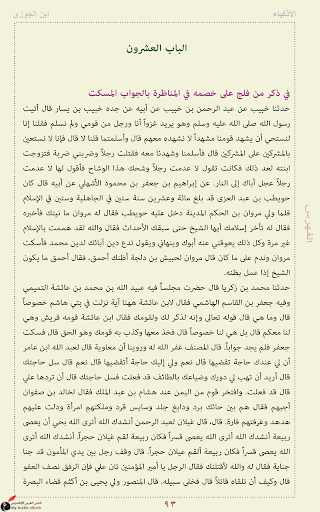 الأذكياء
ابن الجوزي
الباب العشرون
في ذكر من فلج على خصمه في المناظرة بالجواب المسكت
حدثنا خبيب عن عبد الرحمن بن خبيب عن أبيه عن جده خبيب بن يسار قال أتيت
رسول الله صلى الله عليه وسلم وهو يريد غزواً أنا ورجل من قومي ولم نسلم فقلنا إنا
لنستحي أن يشهد قومنا مشهداً لا نشهده معهم قال وأسلمتما قلنا لا قال فإنا لا نستعين
بالمشركين على المشركين قال فأسلمنا وشهدنا معه فقتلت رجلاً وضربني ضربة فتزوجت
ابنته بعد ذلك فكانت تقول لا عدمت رجلاً وشحك هذا الوشاح فأقول لها لا عدمت
رجلاً عجل أباك إلى النار. عن إبراهيم بن جعفر بن محمود الأشهلي عن أبيه قال كان
حويطب بن عبد العزى قد بلغ مائة وعشرين سنة ستين في الجاهلية وستين في الإسلام
فلما ولي مروان بن الحكم المدينة دخل عليه حويطب فقال له مروان ما نيتك فأخبره
فقال له تأخر إسلامك أيها الشيخ حتى سبقك الأحداث فقال والله لقد هممت بالإسلام
غير مرة وكل ذلك يعوقني عنه أبوك وينهاني ويقول تدع دين آبائك لدين محمد فأسكت
مروان وندم على ما كان قال مروان لحبيش بن دلجة أظنك أحمق، فقال أحمق ما يكون
الشيخ إذا عمل بظنه.
حدثنا محمد بن زكريا قال حضرت مجلساً فيه عبيد الله بن محمد بن عائشة التميمي
وفيه جعفر بن القاسم الهاشمي فقال لابن عائشة ههنا آية نزلت في بني هاشم خصوصاً
قال وما هي قال قوله تعالى وإنه لذكر لك ولقومك فقال ابن عائشة قومه قريش وهي
لنا معكم قال بل هي لنا خصوصاً قال فخذ معها وكذب به قومك وهو الحق قال فسكت
جعفر فلم يجد جواباً. قال المصنف غفر الله له وروينا أن معاوية قال لعبد الله ابن عامر
أن لي عندك حاجة تقضيها قال نعم ولي إليك حاجة أتقضيها قال نعم قال سل حاجتك
قال أريد أن تهب لي دورك وضياعك بالطائف قد فعلت فسل حاجتك قال أن تردها علي
قال قد فعلت. وافتخر قوم من اليمن عند هشام بن عبد الملك فقال لخالد بن صفوان
أجبهم فقال هم بين حائك برد ودابغ جلد وسايس قرد وملكتهم امرأة ودلت عليهم
هدهد وغرقتهم فارة. قال، قال غيلان لعبد الرحمن أنشدك الله أترى الله يحي أن يعصى
ربيعة أنشدك الله أترى الله يعصى قسراً فكان ربيعة لقم غيلان حجراً. أنشدك الله أترى
الله يعصى قسراً فكان ربيعة ألقم غيلان حجراً. قال وقف رجل بين يدي المأمون قد جنى
جناية فقال له والله لأقتلنك فقال الرجل يا أمير المؤمنين تأن علي فإن الرفق نصف العفو
قال وكيف أن تلقاه قاتلاً قال فخلى سبيله. قال المنصور ولي يحيى بن أكثم قضاء البصرة
الفهرس
٩٣